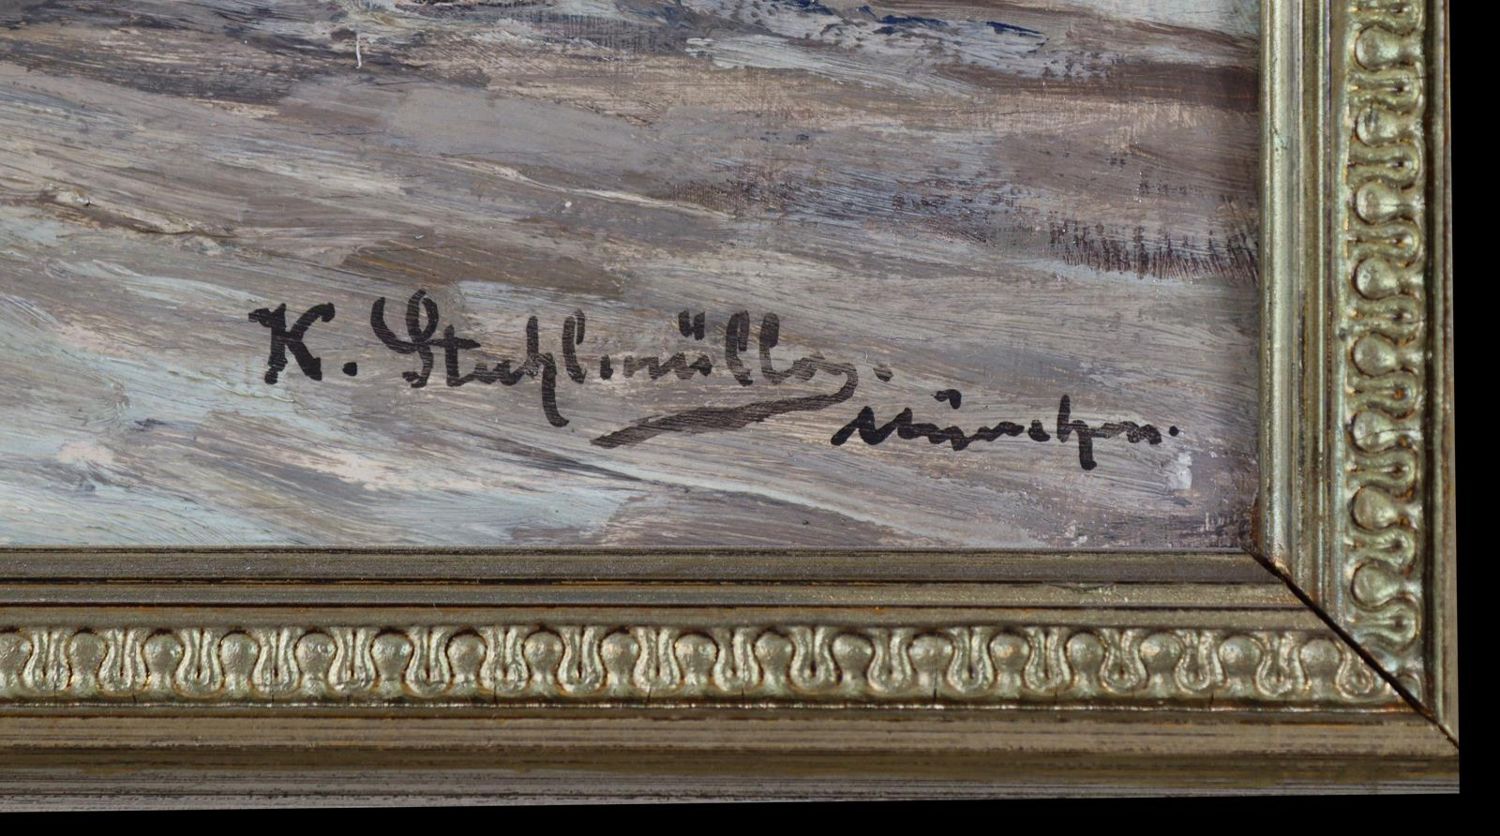 K. Stuhlmüller.
München.